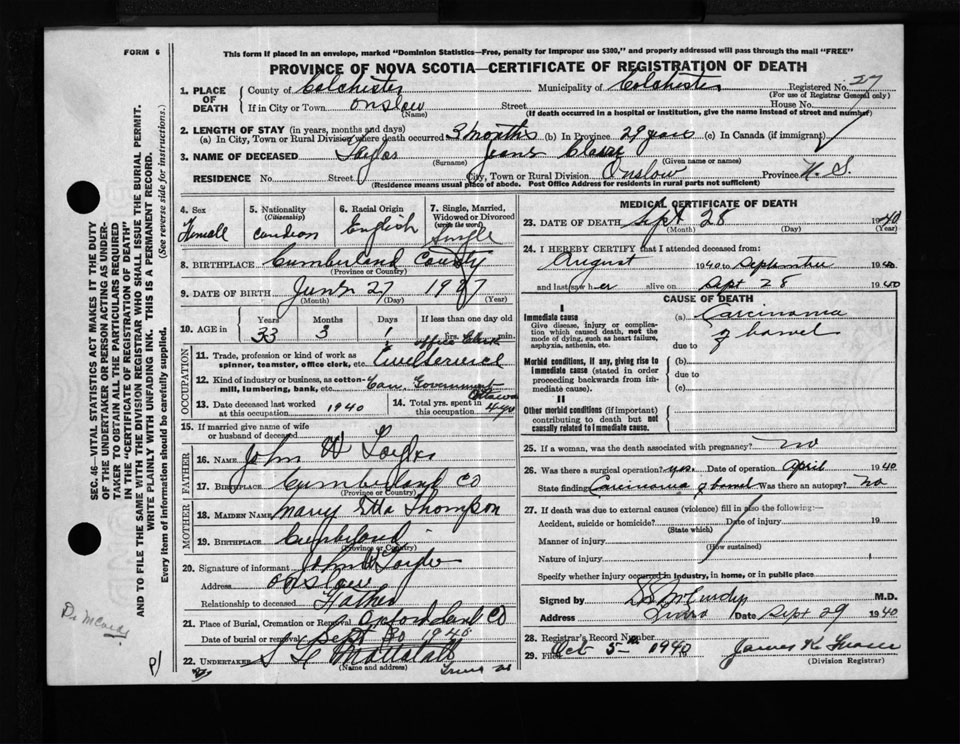 FORM 6
This form if placed in an envelope, marked "Dominion Statistics—Free, penalty for improper use $300," and properly addressed will pass through the mail "FREE"
PROVINCE OF NOVA SCOTIA—CERTIFICATE OF REGISTRATION OF DEATH
1. PLACE OF DEATH
County of Colchester Municipality of Colchester Registered No. 27
(For use of Registrar General only)
If in City or Town Onslow Street House No.
(Name) (If death occurred in a hospital or institution, give the name instead of street and number)
2. LENGTH OF STAY (in years, months and days)
(a) In City, Town or Rural Division where death occurred 3 months (b) In Province 29 years (c) In Canada (if immigrant)
3. NAME OF DECEASED Taylor
(Surname) (Given name or names)
RESIDENCE No. Street City, Town or Rural Division Onslow Province N. S.
(Residence means usual place of abode. Post Office Address for residents in rural parts not sufficient)
4. Sex
5. Nationality
(Citizenship)
6. Racial Origin
English
7. Single, Married, Widowed or Divorced
(write the word)
Single
8. BIRTHPLACE Cumberland County
(Province or Country)
9. DATE OF BIRTH June 27
(Month) (Day) (Year)
10. AGE in Years Months Days If less than one day old
33 3 1 hrs. min.
OCCUPATION
office Clerk
11. Trade, profession or kind of work as spinner, teamster, office clerk, etc.
12. Kind of industry or business, as cotton-mill, lumbering, bank, etc. Can. Government
Ottawa
13. Date deceased last worked at this occupation 1940
14. Total yrs. spent in this occupation
15. If married give name of wife or husband of deceased
FATHER
16. NAME John W Taylor
17. BIRTHPLACE Cumberland Co
(Province or Country)
MOTHER
18. MAIDEN NAME Mary Etta Thompson
19. BIRTHPLACE
(Province or Country)
20. Signature of informant John W Taylor
Address Onslow
Relationship to deceased Father
21. Place of Burial, Cremation or Removal
Date of burial or removal Sept 30 1940
22. UNDERTAKER
(Name and address)
MEDICAL CERTIFICATE OF DEATH
23. DATE OF DEATH Sept 28 1940
(Month) (Day) (Year)
24. I HEREBY CERTIFY that I attended deceased from:
August 1940 to September 1940
and last saw her alive on Sept 28 1940
CAUSE OF DEATH
I
Immediate cause
Give disease, injury or complication which caused death, not the mode of dying, such as heart failure, asphyxia, asthenia, etc.
(a) Carcinoma
of bowel
due to
Morbid conditions, if any, giving rise to immediate cause (stated in order proceeding backwards from immediate cause).
(b)
due to
(c)
II
Other morbid conditions (if important) contributing to death but not causally related to immediate cause.
25. If a woman, was the death associated with pregnancy? no
26. Was there a surgical operation? yes. Date of operation April 1940
State finding Carcinoma of bowel Was there an autopsy? No
27. If death was due to external causes (violence) fill in also the following:—
Accident, suicide or homicide? Date of injury 19
(State which)
Manner of injury
(How sustained)
Nature of injury
Specify whether injury occurred in industry, in home, or in public place
Signed by M.D.
Address Truro Date Sept 29 1940
28. Registrar's Record Number
29. Filed Oct 5th 1940
(Division Registrar)
SEC. 46—VITAL STATISTICS ACT MAKES IT THE DUTY
OF THE UNDERTAKER OR PERSON ACTING AS UNDERTAKER TO OBTAIN ALL THE PARTICULARS REQUIRED
IN THE "CERTIFICATE OF REGISTRATION OF DEATH"
AND TO FILE THE SAME WITH THE DIVISION REGISTRAR WHO SHALL ISSUE THE BURIAL PERMIT.
WRITE PLAINLY WITH UNFADING INK. THIS IS A PERMANENT RECORD.
Every item of information should be carefully supplied. (See reverse side for instructions.)